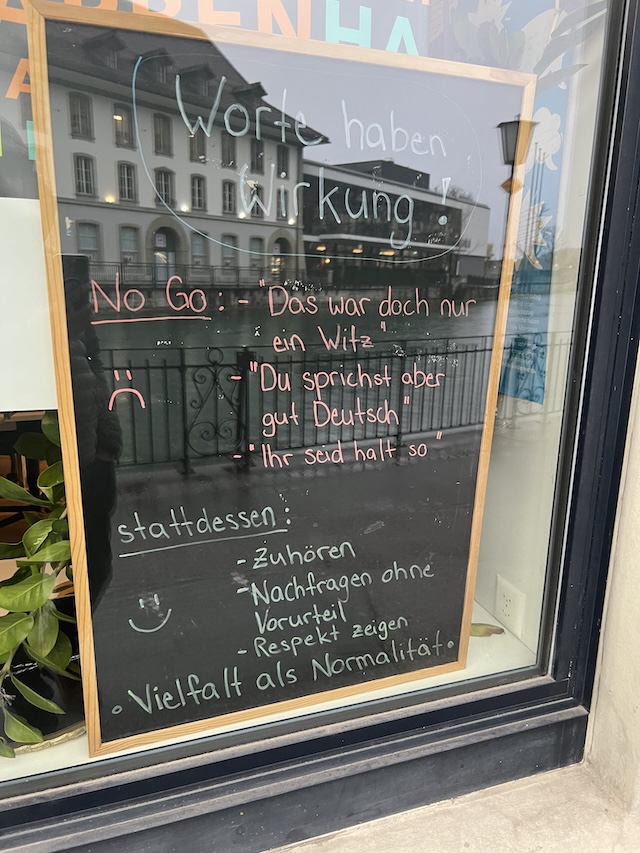 Worte haben
Wirkung!
No Go: - "Das war doch nur
ein Witz"
- "Du sprichst aber
gut Deutsch"
- "Ihr seid halt so"
stattdessen:
- Zuhören
- Nachfragen ohne
Vorurteil
- Respekt zeigen
• Vielfalt als Normalität •